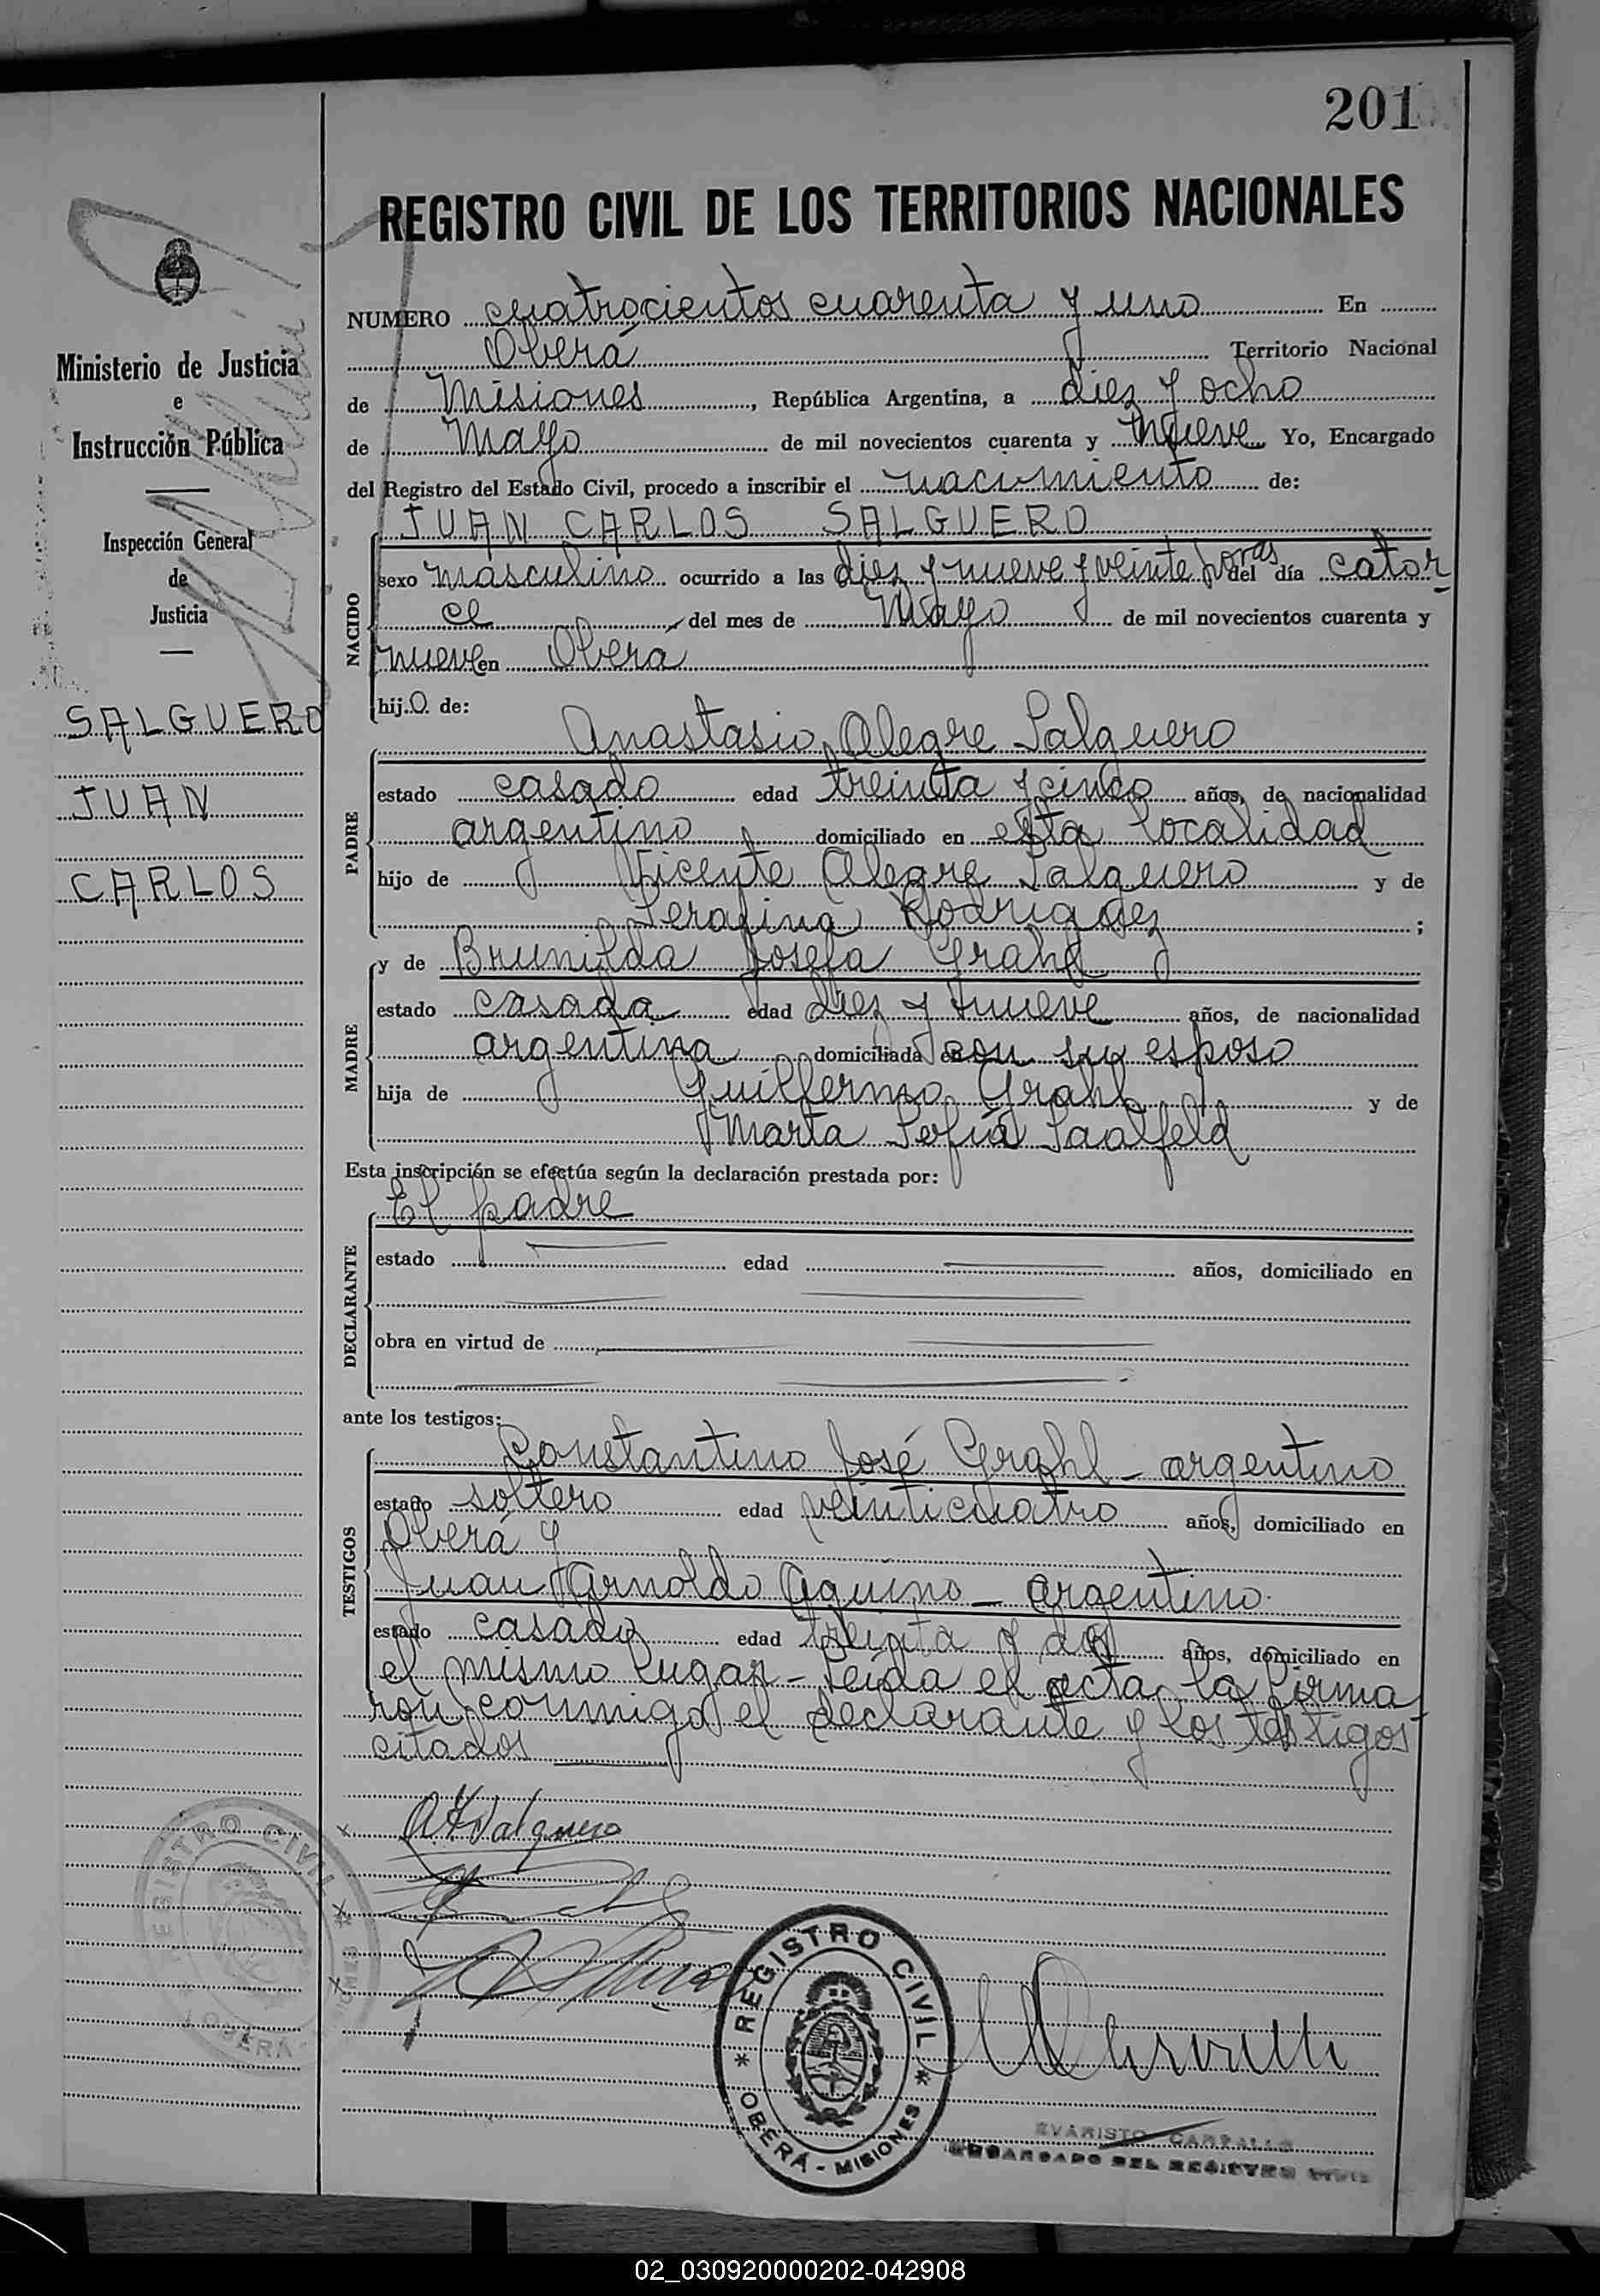 201
REGISTRO CIVIL DE LOS TERRITORIOS NACIONALES
Ministerio de Justicia
e
Instrucción Pública
Inspección General
de
Justicia
SALGUERO
JUAN
CARLOS
NUMERO cuatrocientos cuarenta y uno En
Oberá Territorio Nacional
de Misiones, República Argentina, a diez y ocho
de Mayo de mil novecientos cuarenta y nueve Yo, Encargado
del Registro del Estado Civil, procedo a inscribir el nacimiento de:
JUAN CARLOS SALGUERO
NACIDO
sexo masculino ocurrido a las diez y nueve y veinte horas del día cator-
ce del mes de Mayo de mil novecientos cuarenta y
nueve en Oberá
hijo de:
Anastasio Alegre Salguero
PADRE
estado casado edad treinta y cinco años, de nacionalidad
argentino domiciliado en esta localidad
hijo de Vicente Alegre Salguero y de
Serafina Rodriguez ;
y de Brunilda Josefa Grahl
MADRE
estado casada edad diez y nueve años, de nacionalidad
argentina domiciliada en con su esposo
hija de Guillermo Grahl y de
Marta Sofía Saalfeld
Esta inscripción se efectúa según la declaración prestada por:
El padre
DECLARANTE
estado edad años, domiciliado en
obra en virtud de
ante los testigos:
Constantino José Grahl - argentino
TESTIGOS
estado soltero edad veinticuatro años, domiciliado en
Oberá y
Juan Arnoldo Aquino - argentino
estado casado edad treinta y dos años, domiciliado en
el mismo lugar - Leída el acta, la firma
ron conmigo el declarante y los testigos
citados
A. A. Salguero
REGISTRO CIVIL
OBERÁ - MISIONES
REGISTRO CIVIL
OBERÁ - MISIONES
EVARISTO CARBALLO
ENCARGADO DEL REGISTRO CIVIL
02_030920000202-042908